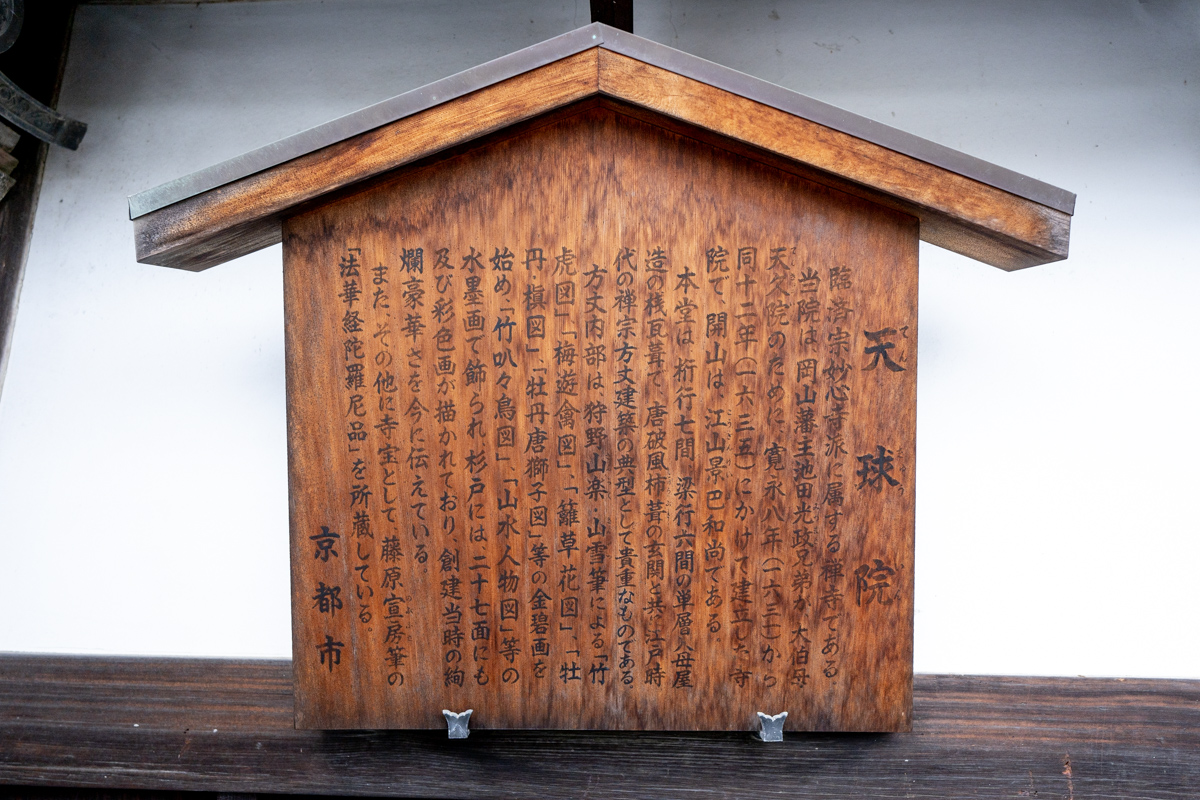 天球院
臨済宗妙心寺派に属する禅寺である。
当院は、岡山藩主池田光政兄弟が、大伯母
天久院のために、寛永八年(一六三一)から
同十二年(一六三五)にかけて建立した寺
院で、開山は、江山景巴和尚である
本堂は、桁行七間、梁行六間の単層入母屋
造の桟瓦葺で、唐破風柿葺の玄関と共に江戸時
代の禅宗方丈建築の典型として貴重なものである。
方丈内部は、狩野山楽・山雪筆による「竹
虎図」「梅遊禽図」、「籬草花図」、「牡
丹・槇図」、「牡丹唐獅子図」等の金碧画を
始め、「竹叭々鳥図」、「山水人物図」等の
水墨画で飾られ、杉戸には、二十七面にも
及び彩色画が描かれており、創建当時の絢
爛豪華さを今に伝えている。
また、その他に寺宝として、藤原宣房筆の
「法華経陀羅尼品」を所蔵している。
京都市